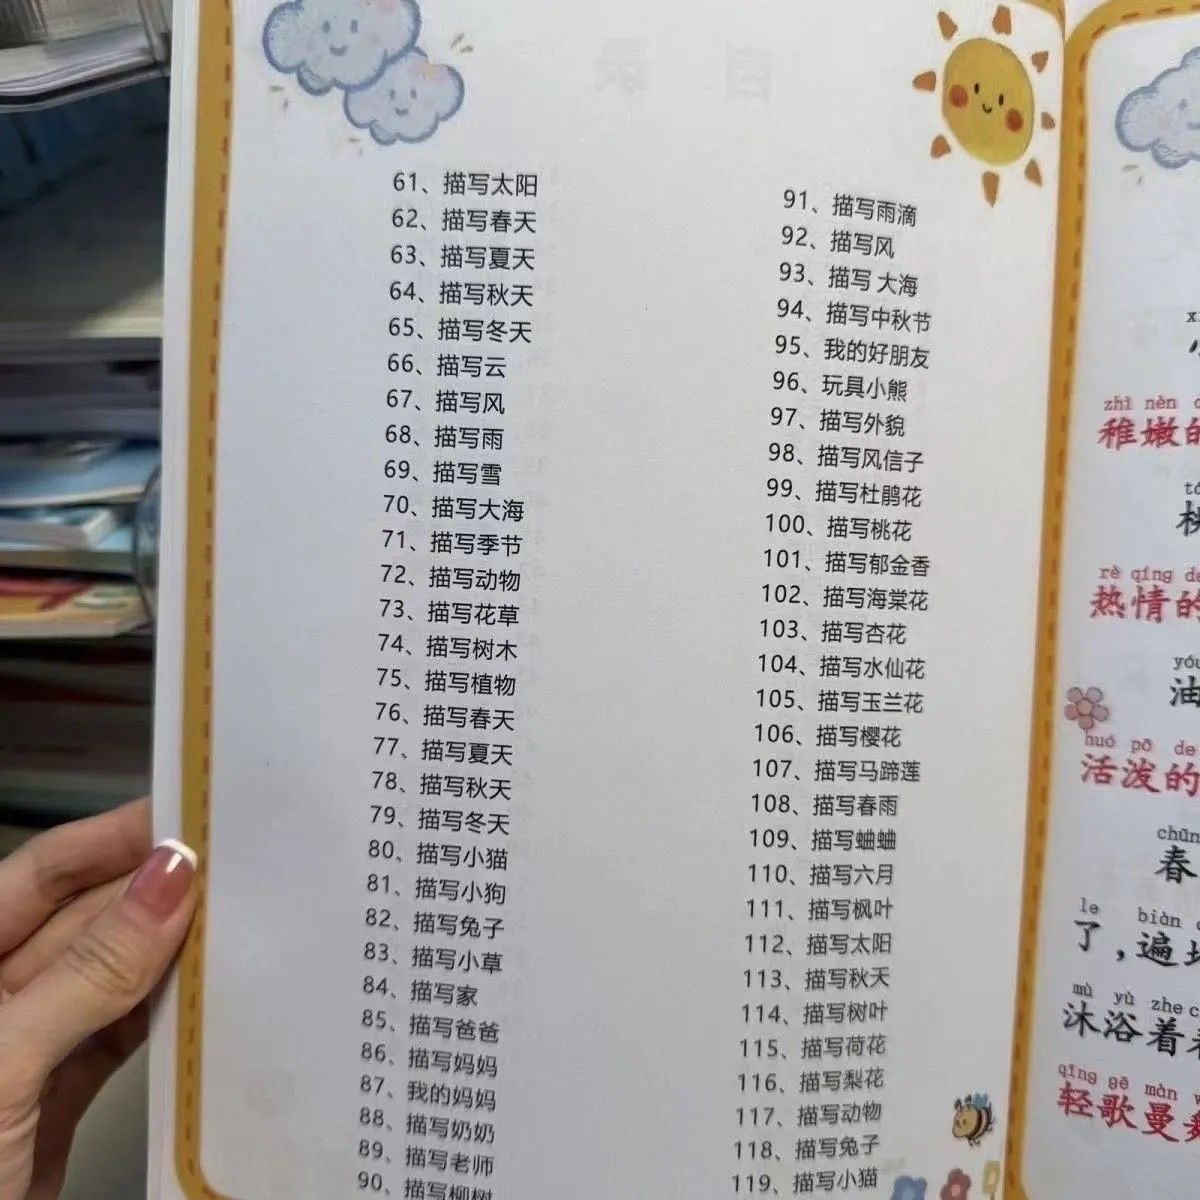 61、描写太阳
62、描写春天
63、描写夏天
64、描写秋天
65、描写冬天
66、描写云
67、描写风
68、描写雨
69、描写雪
70、描写大海
71、描写季节
72、描写动物
73、描写花草
74、描写树木
75、描写植物
76、描写春天
77、描写夏天
78、描写秋天
79、描写冬天
80、描写小猫
81、描写小狗
82、描写兔子
83、描写小草
84、描写家
85、描写爸爸
86、描写妈妈
87、我的妈妈
88、描写奶奶
89、描写老师
90、描写柳树
91、描写雨滴
92、描写风
93、描写 大海
94、描写中秋节
95、我的好朋友
96、玩具小熊
97、描写外貌
98、描写风信子
99、描写杜鹃花
100、描写桃花
101、描写郁金香
102、描写海棠花
103、描写杏花
104、描写水仙花
105、描写玉兰花
106、描写樱花
107、描写马蹄莲
108、描写春雨
109、描写蛐蛐
110、描写六月
111、描写枫叶
112、描写太阳
113、描写秋天
114、描写树叶
115、描写荷花
116、描写梨花
117、描写动物
118、描写兔子
119、描写小猫
zhì nèn
稚嫩的
rè qíng de
热情的
油
huó pō de
活泼的
chūn
春
le biàn
了，遍
mù yù zhe
沐浴着
qīng gē màn
轻歌曼